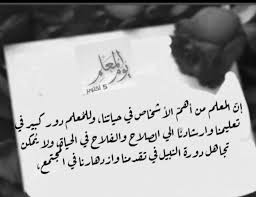 يوم المعلم
5 أكتوبر
إنّ المعلم من أهمّ الأشخاص في حياتنا، وللمعلم دور كبير في
تعليمنا وارشادنا الي الصلاح والفلاح في الحياة، ولا يمكن
تجاهل دورة النبيل في تقدمنا وازدهارنا في المجتمع،